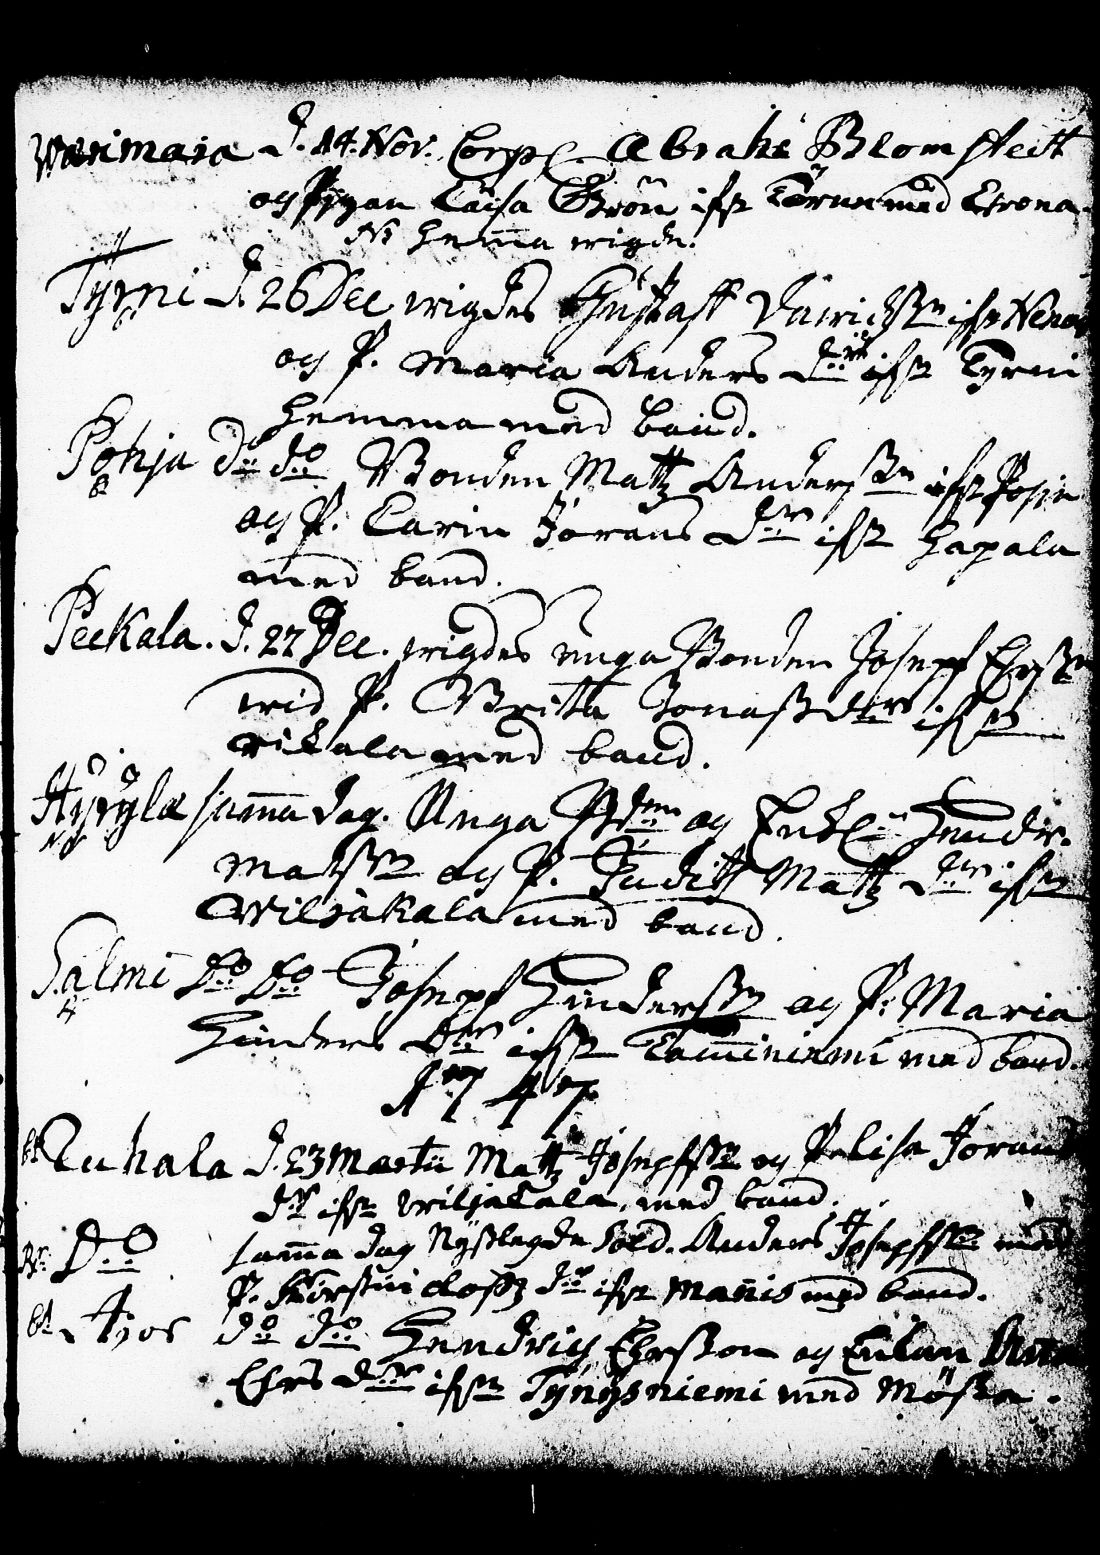 Warimaia D. 14. Nov. Corpl. Abrahā Blomstedt
og Pigan Caisa Grön ifrn Törun med Crona
N1 hema wigde.
Tyrni D. 26 Dec wigdes Gustaff Davidssn ifrn
og P. Maria Anders dr ifrn Tyrni
hemma med band.
Pohja do do Bonden Matts Anderssn ifrn Pohja
og P. Carin Jörans dr ifrn Hapala
med band.
Peekala. D. 27 Dec. wigdes unga Bonden Joseph Ersn
wid P. Brita Jonassdr ifrn
vikala med band.
Hyrylä sama dag. Unga Bdn og Enkl. Hendr.
Matssn og P. Judith Matts dr ifrn
Wiljakala med band.
Salmi Do Do Joseph Hinderssn og P. Maria
Hinders dr ifrn Laminiemi med band.
1747
bt Luhala D. 23 Martii Matts Josephssn og P. Lisa Jörans
dr ifrn wiljakala, med band.
Do sama dag Nysslegde Sold. Anders Josephssn med
P. Kirstin Clossz dr ifrn Mañis med band.
bt Ajos do do Hendrich Ehrsson og Enkan
Ehrs dr ifrn Tynysniemi med Mössa.